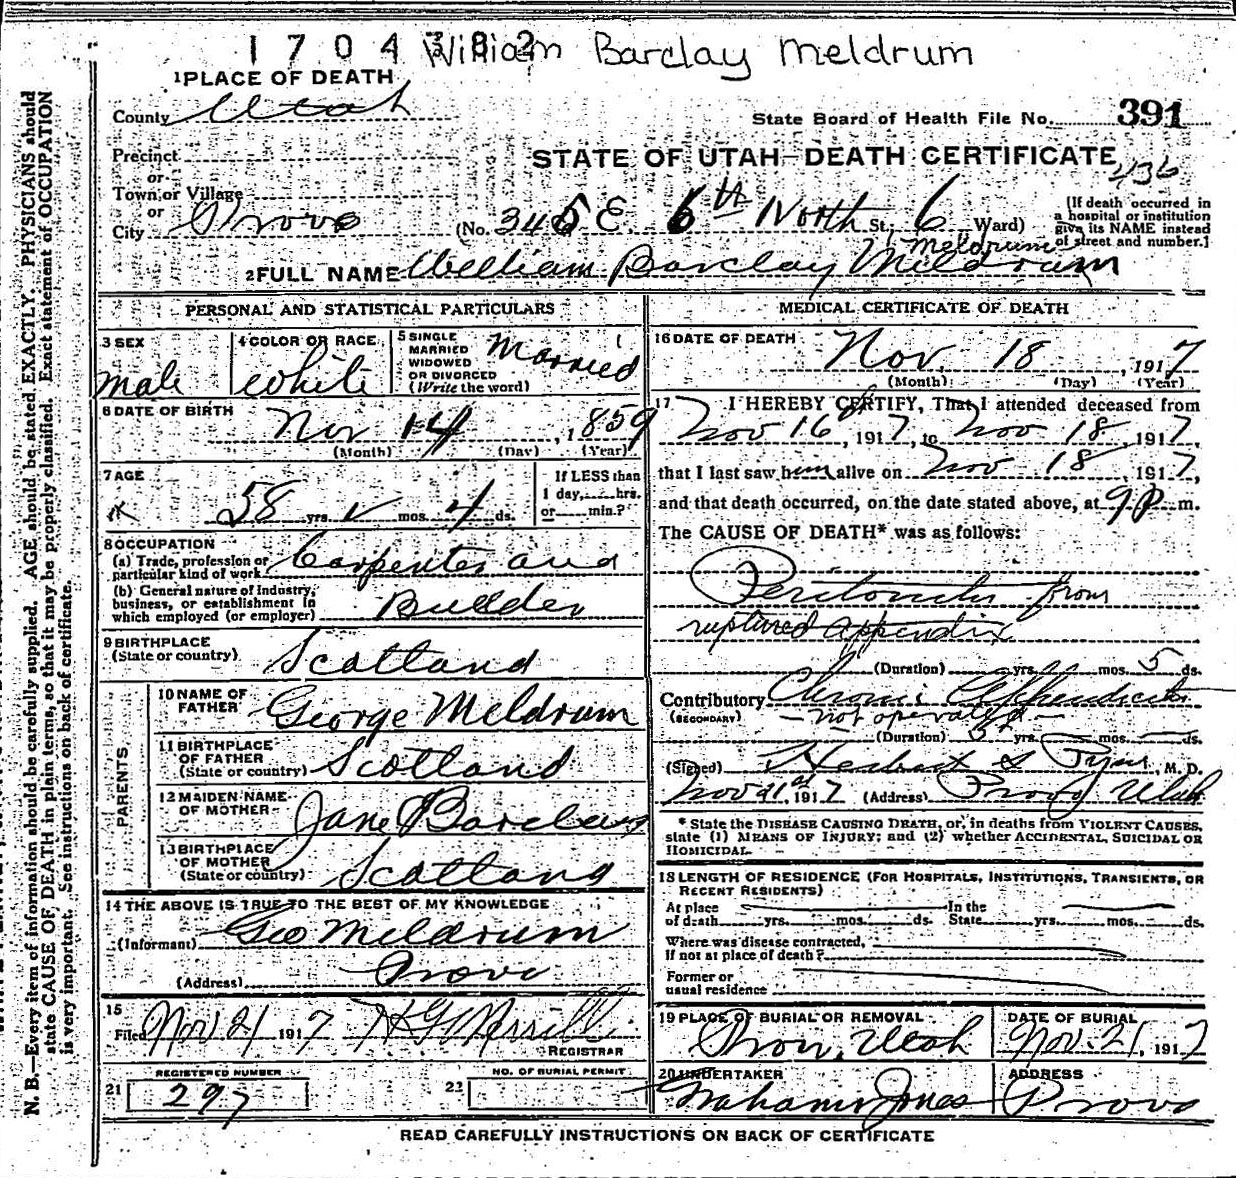 1704382 William Barclay Meldrum
1 PLACE OF DEATH
County Utah
State Board of Health File No. 391
Precinct
or
Town or Village
or
City Provo
STATE OF UTAH—DEATH CERTIFICATE
436
(No. 345 E 6th North St; 6 Ward)
(If death occurred in a hospital or institution give its NAME instead of street and number.]
Meldrum
2 FULL NAME William Barclay Meldrum
PERSONAL AND STATISTICAL PARTICULARS
3 SEX
male
4 COLOR OR RACE
white
5 SINGLE
MARRIED
WIDOWED
OR DIVORCED
(Write the word)
Married
6 DATE OF BIRTH
Nov 14, 1859
(Month) (Day) (Year)
7 AGE
58 yrs. mos. 4 ds.
If LESS than
1 day, hrs.
or min.?
8 OCCUPATION
(a) Trade, profession or
particular kind of work Carpenter and
(b) General nature of industry,
business, or establishment in
which employed (or employer) Builder
9 BIRTHPLACE
(State or country) Scotland
PARENTS
10 NAME OF
FATHER George Meldrum
11 BIRTHPLACE
OF FATHER
(State or country) Scotland
12 MAIDEN NAME
OF MOTHER Jane Barclay
13 BIRTHPLACE
OF MOTHER
(State or country) Scotland
14 THE ABOVE IS TRUE TO THE BEST OF MY KNOWLEDGE
(Informant) Geo Meldrum
(Address) Provo
15
Filed Nov 21 1917 H G Merrill
REGISTRAR
REGISTERED NUMBER
21 297
NO. OF BURIAL PERMIT
22
MEDICAL CERTIFICATE OF DEATH
16 DATE OF DEATH
Nov. 18, 1917
(Month) (Day) (Year)
17 I HEREBY CERTIFY, That I attended deceased from
Nov 16, 1917, to Nov 18, 1917,
that I last saw him alive on Nov 18 1917,
and that death occurred, on the date stated above, at 9 p m.
The CAUSE OF DEATH* was as follows:
Peritonitis from
ruptured appendix
(Duration) yrs. mos. 5 ds.
Contributory Chronic Appendicitis
(SECONDARY) — not operated —
(Duration) yrs. mos. ds.
(Signed) Herbert S Pyne, M. D.
Nov 21, 1917 (Address) Provo Utah
* State the DISEASE CAUSING DEATH, or, in deaths from VIOLENT CAUSES,
state (1) MEANS OF INJURY; and (2) whether ACCIDENTAL, SUICIDAL OR
HOMICIDAL.
18 LENGTH OF RESIDENCE (FOR HOSPITALS, INSTITUTIONS, TRANSIENTS, OR
RECENT RESIDENTS)
At place In the
of death yrs. mos. ds. State yrs. mos. ds.
Where was disease contracted,
If not at place of death?
Former or
usual residence
19 PLACE OF BURIAL OR REMOVAL
Provo, Utah
DATE OF BURIAL
Nov. 21, 1917
20 UNDERTAKER
Graham Jones
ADDRESS
Provo
READ CAREFULLY INSTRUCTIONS ON BACK OF CERTIFICATE
N. B.—Every item of information should be carefully supplied. AGE should be stated EXACTLY. PHYSICIANS should
state CAUSE OF DEATH in plain terms, so that it may be properly classified. Exact statement of OCCUPATION
is very important. See instructions on back of certificate.